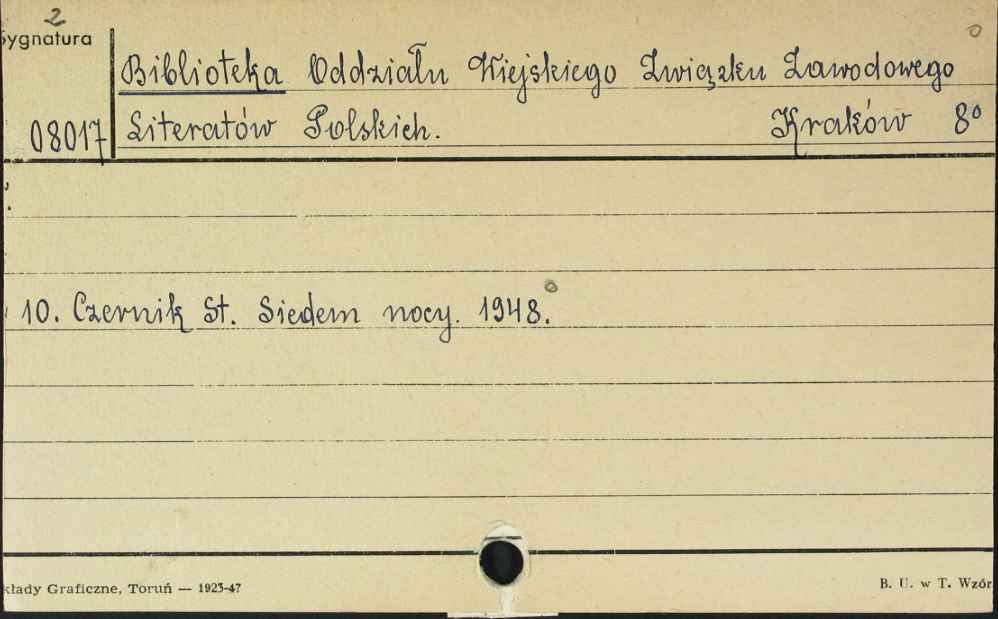 2
Sygnatura
Biblioteka Oddziału Wiejskiego Związku Zawodowego
08017 Literatów Polskich. Kraków 8º
10. Czernik St. Siedem nocy. 1948.
kłady Graficzne, Toruń — 1923-47 B. U. w T. Wzór